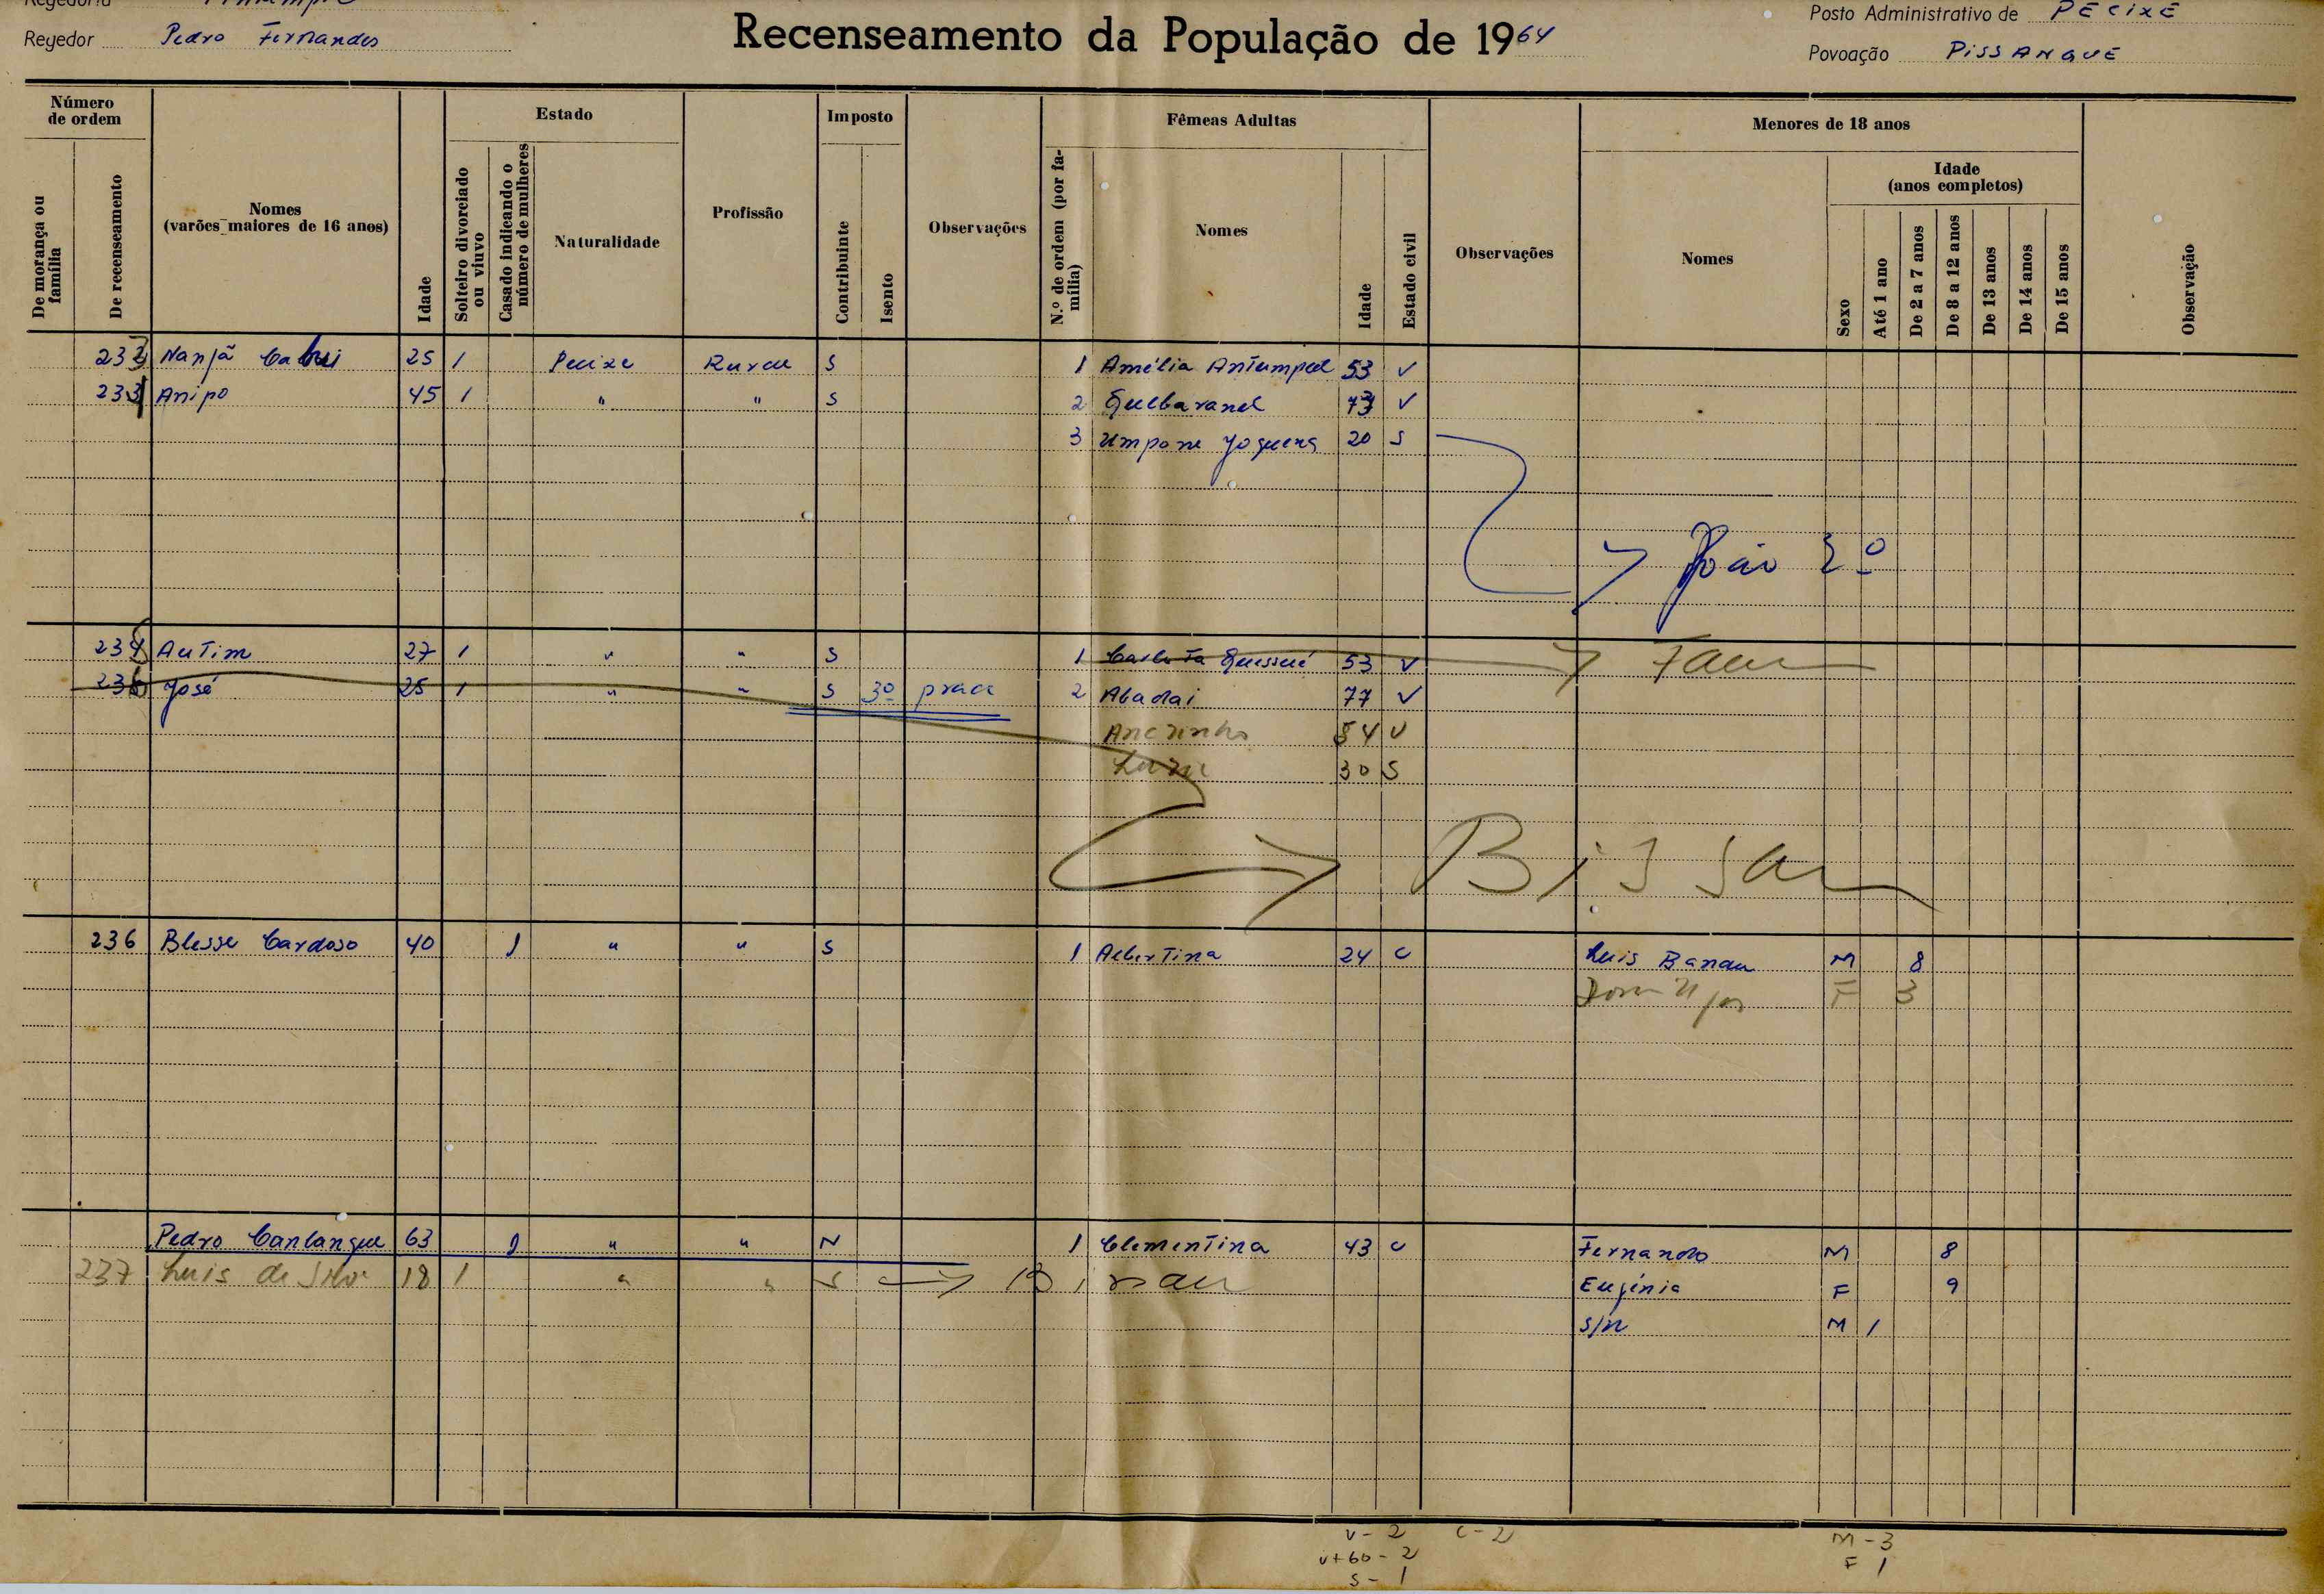 Regedoria
Regedor Pedro Fernandes
Recenseamento da População de 1964
Posto Administrativo de PECIXE
Povoação PISSANGUE
Número de ordem
De morança ou família
De recenseamento
Nomes (varões maiores de 16 anos)
Idade
Estado
Solteiro divorciado ou viuvo
Casado indicando o número de mulheres
Naturalidade
Profissão
Imposto
Contribuinte
Isento
Observações
Fêmeas Adultas
N.º de ordem (por família)
Nomes
Idade
Estado civil
Observações
Menores de 18 anos
Nomes
Idade (anos completos)
Sexo
Até 1 ano
De 2 a 7 anos
De 8 a 12 anos
De 13 anos
De 14 anos
De 15 anos
Observação
Nanjã 25 1 Pecixe Rural S 1 Amélia Antumpel 53 V
Anipo 45 1 " " S 2 73 V
3 Umpane 20 S
João 2º
27 1 " " S 1 53 V
José 25 1 " " S 3º praca 2 Abadai 77 V
54 V
30 S
Bissau
236 Blesse Cardoso 40 1 " " S 1 Albertina 24 C Luis Banau M 8
F 3
Pedro Canlangue 63 1 " " N 1 Clementina 43 C Fernando M 8
237 Luis da Silva 18 1 " " S Bissau Eugénia F 9
S/N M 1
V - 2 C - 2 M - 3
V+60 - 2 F 1
S - 1